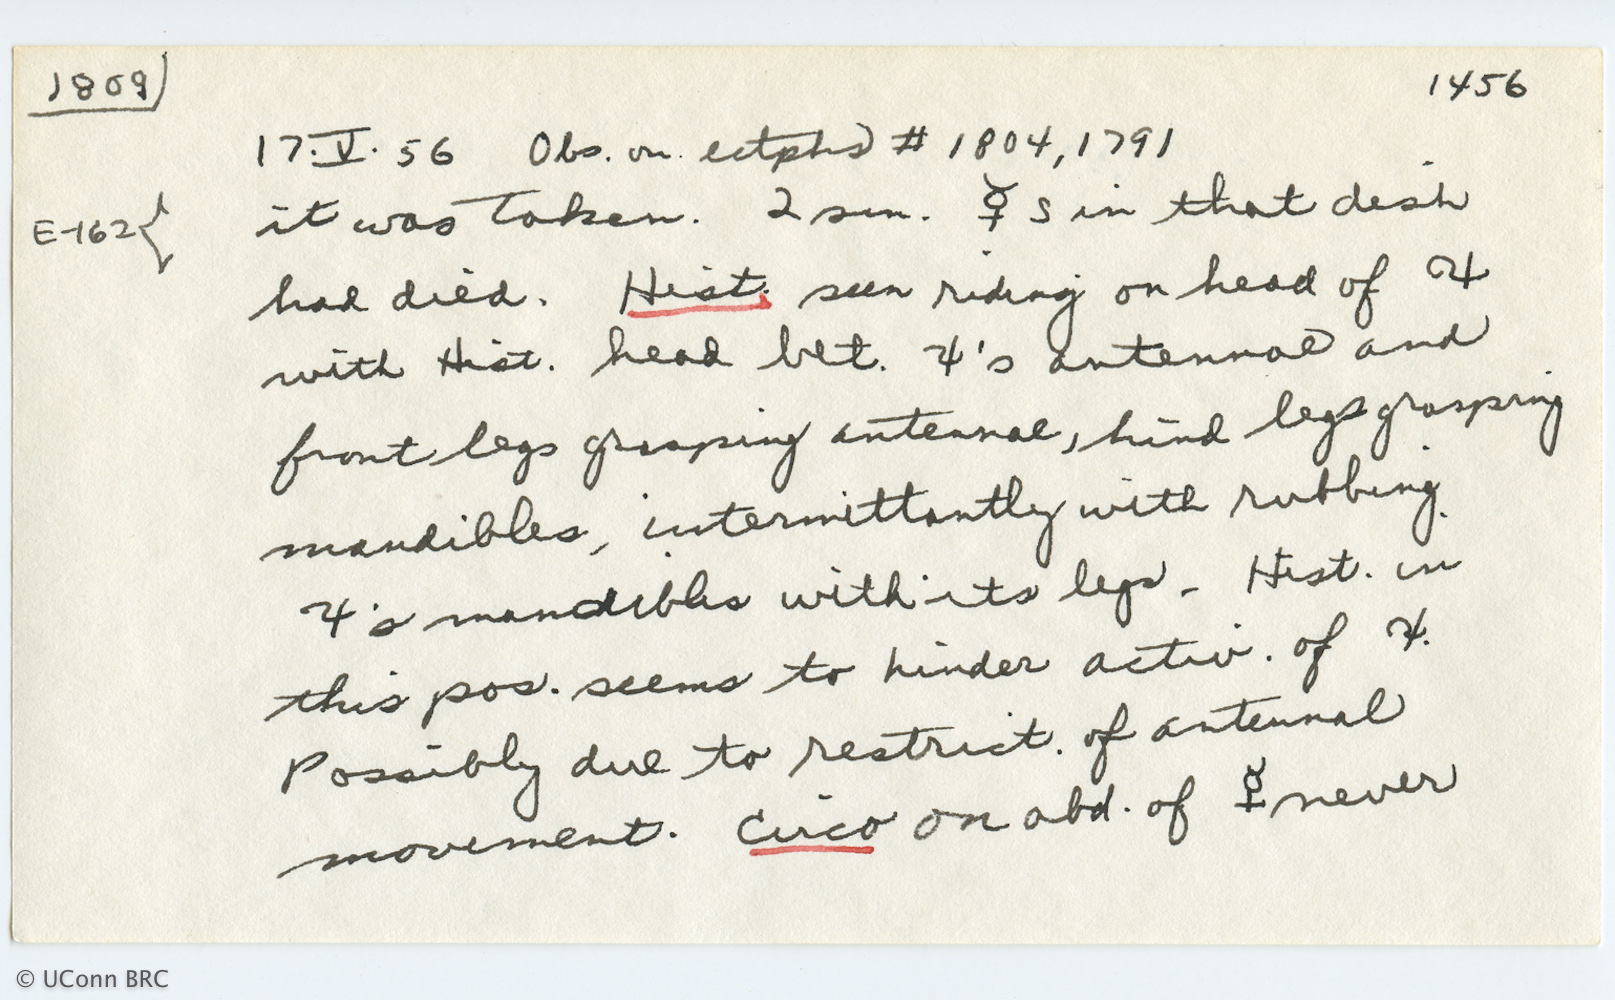 1809
1456
17.V.56 Obs. on ectphs # 1804, 1791
E-162 { it was taken. 2 sm. ☿s in that dish
had died. Hist. seen riding on head of ♃
with Hist. head bet. ♃'s antennae and
front legs grasping antennae, hind legs grasping
mandibles, intermittantly with rubbing
♃'s mandibles with its legs - Hist. in
this pos. seems to hinder activ. of ♃.
Possibly due to restrict. of antennal
movement. Circo on abd. of ☿ never
© UConn BRC